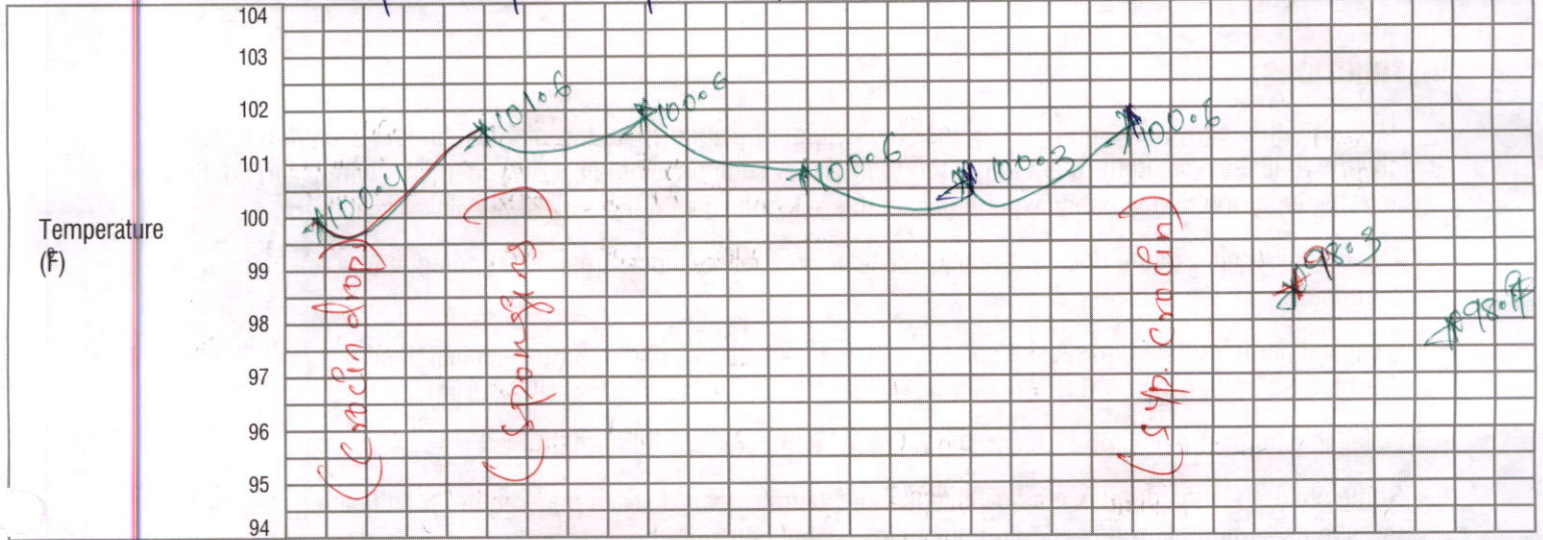 104
103
102
101
100
99
98
97
96
95
94
Temperature
(°F)
100.4
101.6
100.6
100.6
100.3
100.6
98.3
(Crocin drop)
(Sponging)
(Syp. crocin)